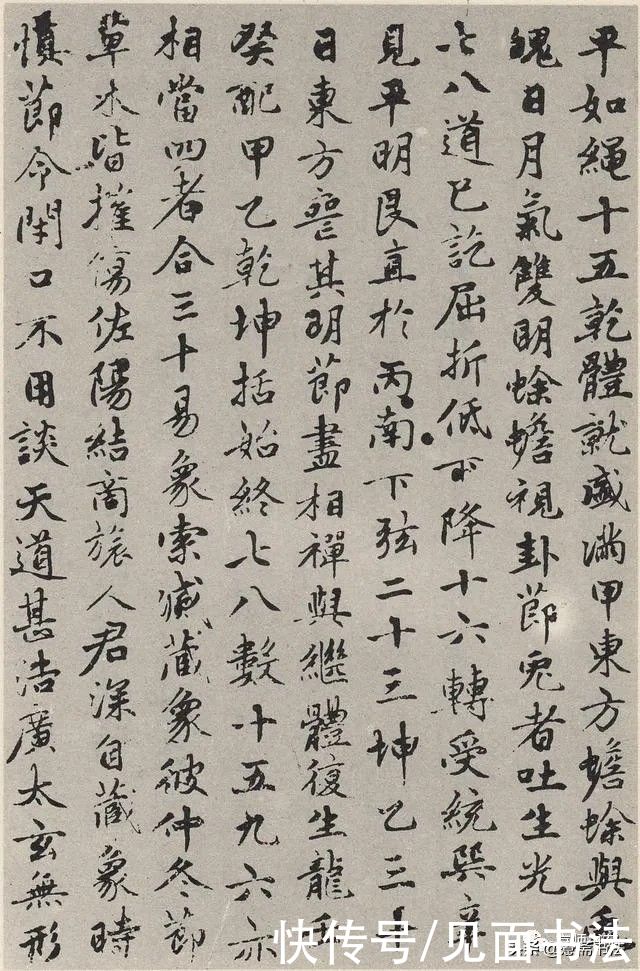 平如繩十五乾體就盛滿甲東方蟾蜍與兎
魄日月氣雙明蜍蟾視卦節兎者吐生光
七八道已訖屈折低下降十六轉受統巽辛
見平明艮直於丙南下弦二十三坤乙三十
日東方喪其明節盡相禪與繼體復生龍壬
癸配甲乙乾坤括始終七八數十五九六亦
相當四者合三十易象索滅藏象彼仲冬節
草木皆摧傷佐陽結商旅人君深自藏象時
慎節令閉口不用談天道甚浩廣太玄無形
快传号/见面书法